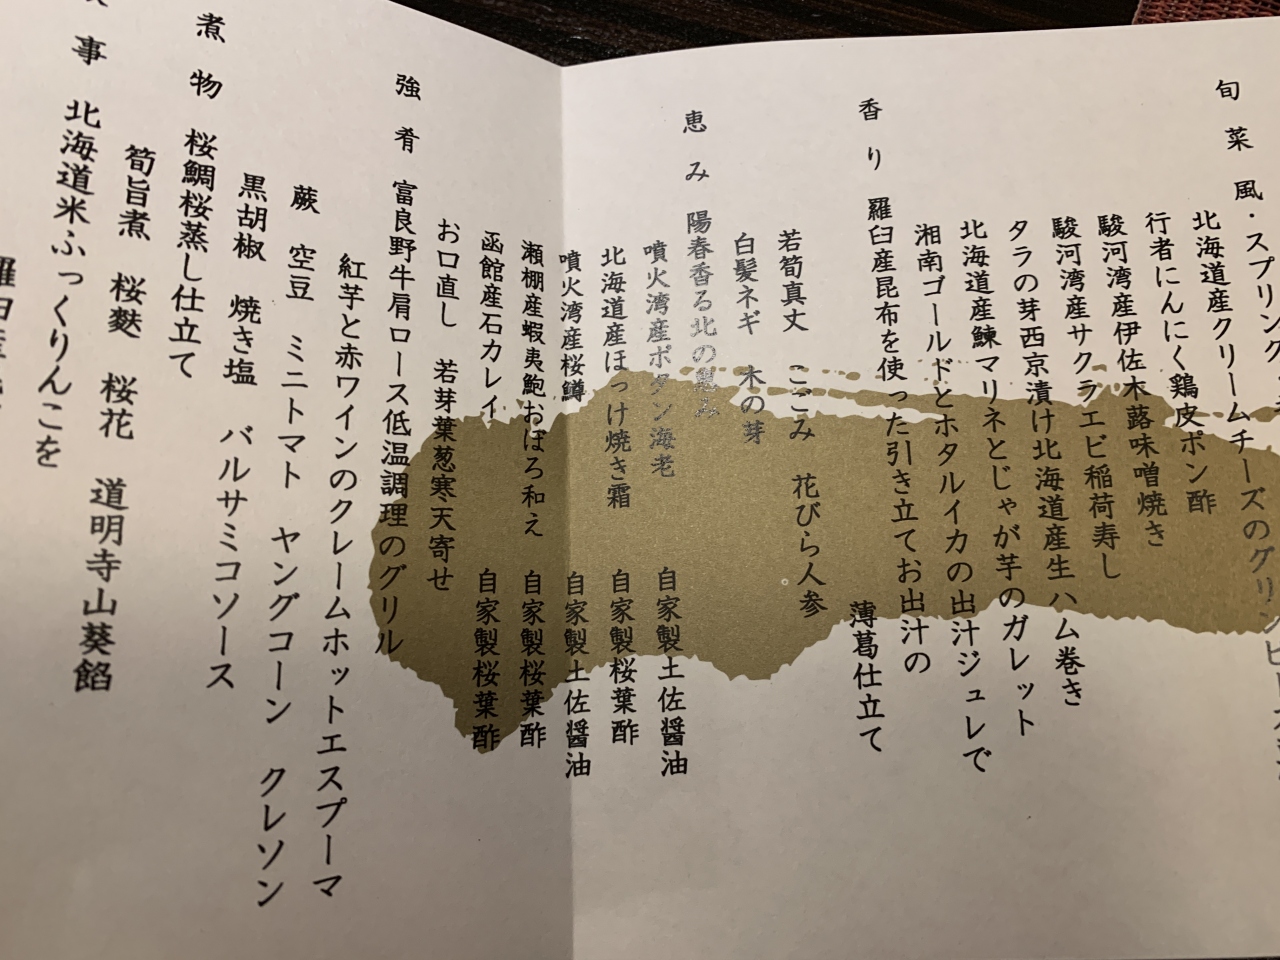 旬菜 風・スプリング
北海道産クリームチーズのグリ
行者にんにく鶏皮ポン酢
駿河湾産伊佐木蕗味噌焼き
駿河湾産サクラエビ稲荷寿し
タラの芽西京漬け北海道産生ハム巻き
北海道産鰊マリネとじゃが芋のガレット
湘南ゴールドとホタルイカの出汁ジュレで
香り 羅臼産昆布を使った引き立てお出汁の
薄葛仕立て
若筍真丈 こごみ 花びら人参
白髪ネギ 木の芽
恵み 陽春香る北の恵み
噴火湾産ボタン海老 自家製土佐醤油
北海道産ほっけ焼き霜 自家製桜葉酢
噴火湾産桜鱒 自家製土佐醤油
瀬棚産蝦夷鮑おぼろ和え 自家製桜葉酢
函館産石カレイ 自家製桜葉酢
お口直し 若芽葉葱寒天寄せ
強肴 富良野牛肩ロース低温調理のグリル
紅芋と赤ワインのクレームホットエスプーマ
蕨 空豆 ミニトマト ヤングコーン クレソン
黒胡椒 焼き塩 バルサミコソース
煮物 桜鯛桜蒸し仕立て
筍旨煮 桜麩 桜花 道明寺山葵餡
事 北海道米ふっくりんこを